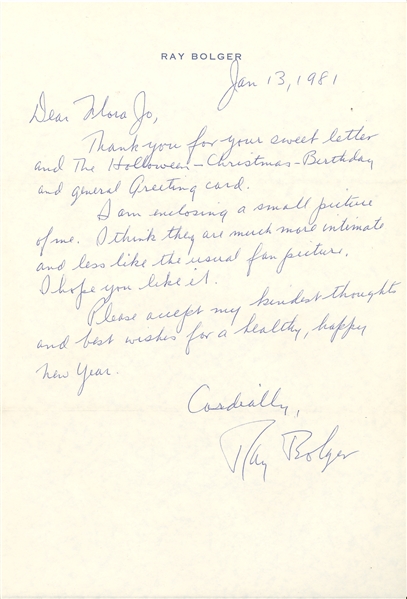 RAY BOLGER
Jan 13, 1981
Dear Flora Jo,
Thank you for your sweet letter
and The Holloween-Christmas-Birthday
and general Greeting card.
I am enclosing a small picture
of me. I think they are much more intimate
and less like the usual fan picture.
I hope you like it.
Please accept my kindest thoughts
and best wishes for a healthy, happy
New Year.
Cordially,
Ray Bolger